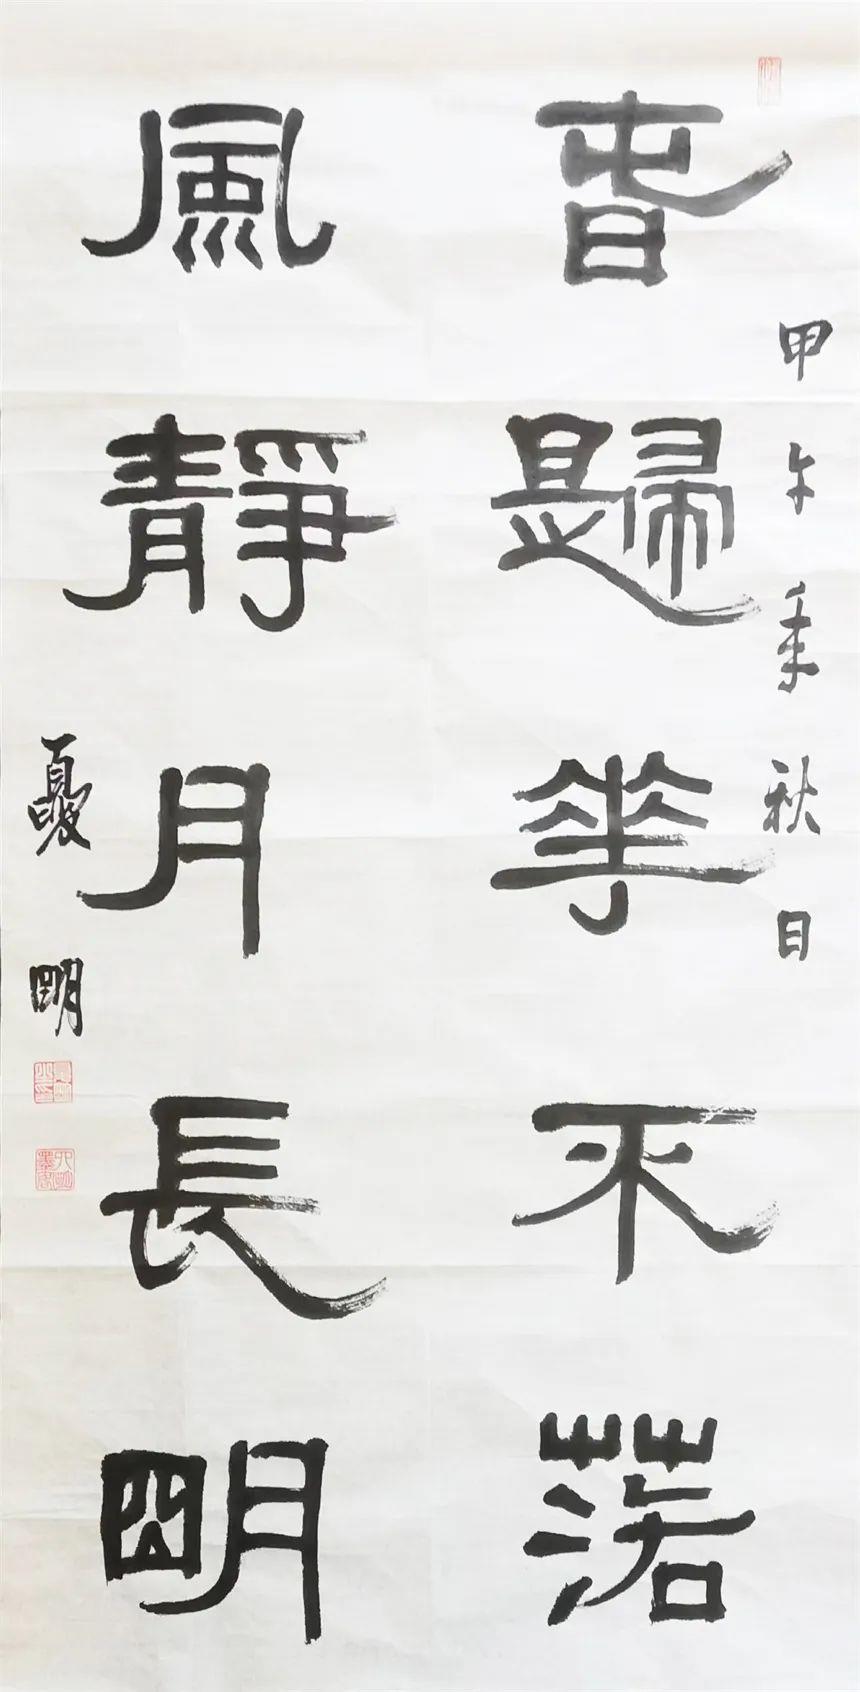 旾歸華不落
風靜月長明
甲午年秋日
夏明